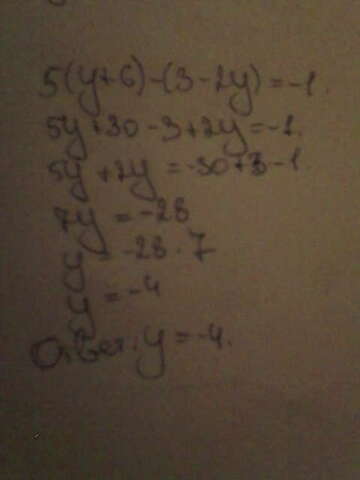 5(y+6)-(3-2y)=-1.
5y+30-3+2y=-1.
5y+2y=-30+3-1.
7y=-28
y=-28·7
y=-4
Ответ: y=-4.